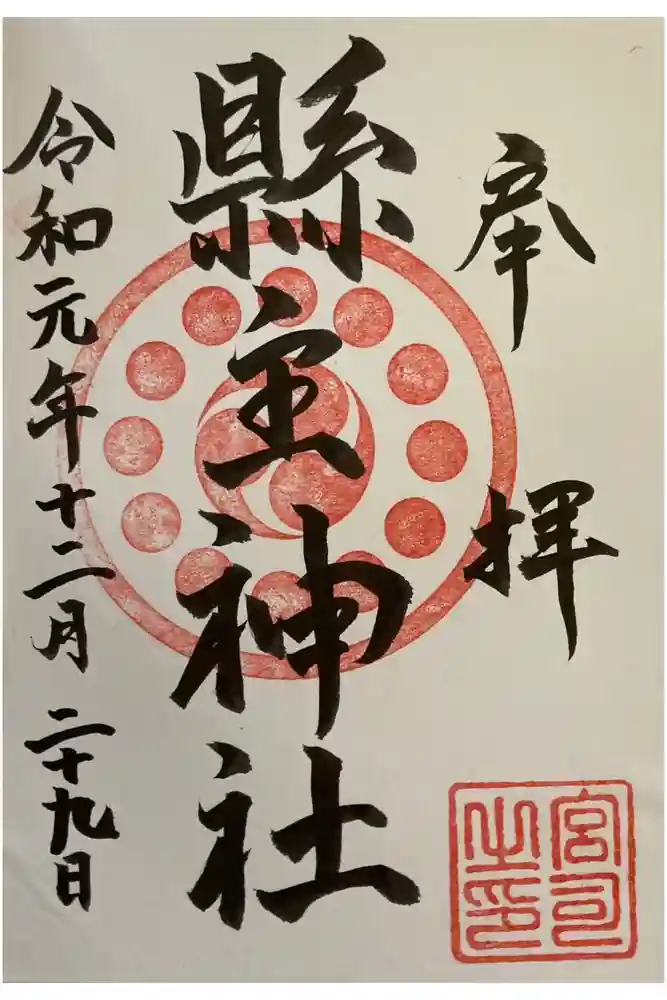 奉拝
縣主神社
令和元年十二月二十九日
宮司之印